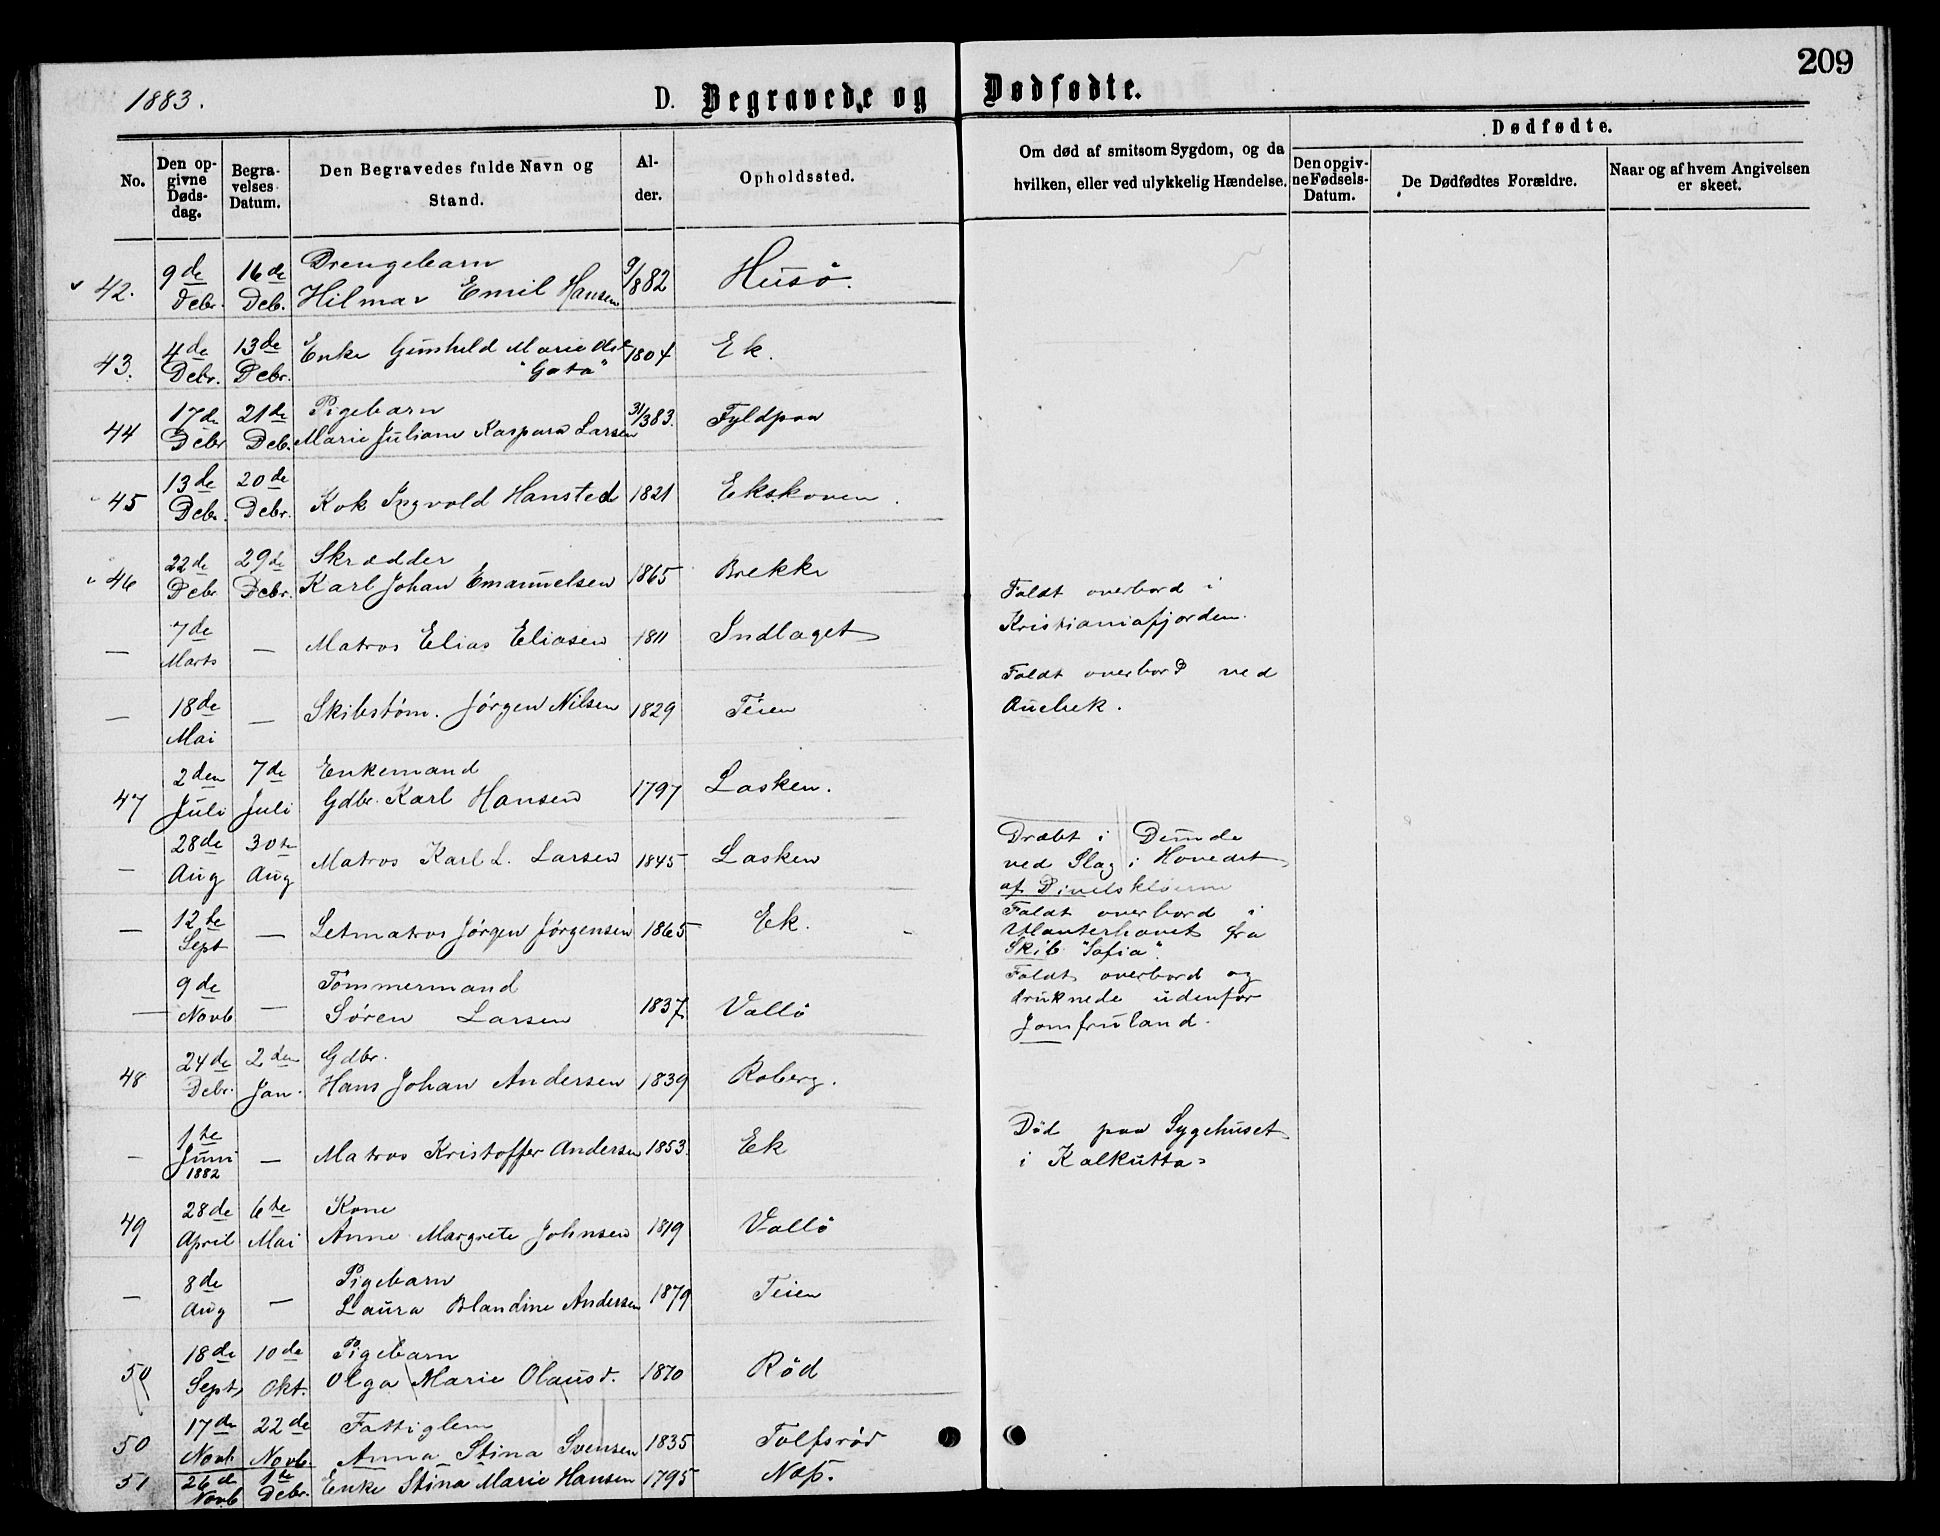 209
1883.
D. Begravede og Dødfødte.
No.
Den opgivne Dødsdag.
Begravelses Datum.
Den Begravedes fulde Navn og Stand.
Alder.
Opholdssted.
Om død af smitsom Sygdom, og da hvilken, eller ved ulykkelig Hændelse.
Dødfødte.
Den opgivne Fødsels-Datum.
De Dødfødtes Forældre.
Naar og af hvem Angivelsen er skeet.
42. 9de Debr. 16de Deb. Drengebarn Hilmar Emil Hansen 9/8 82 Husö.
43. 4de Debr. 13de Debr. Enke Gunhild Marie Olsd "Gata" 1804 Ek.
44 17de Debr 21de Deb. Pigebarn Marie Juliane Kaspara Larsen 31/3 83. Fyldpaa
45 13de Debr. 20de Debr. Kok Ingvold Hansted 1821 Ekskoven.
46 22de Debr 29de Debr. Skrædder Karl Johan Emanuelsen 1865 Brekke
— 7de Marts — Matros Elias Eliasen 1811 Indlaget Faldt overbord i Kristianiafjorden.
— 18de Mai — Skibstøm. Jørgen Nilsen 1829 Teien Faldt overbord ved Auebek.
47 2den Juli 7de Juli Enkemand Gdbr. Karl Hansen 1797 Lasken.
— 28de Aug 30te Aug Matros Karl L. Larsen 1845 Lasken Dræbt i ved Slag i Hovedet af
— 12te Sept — Letmatros Jørgen Jørgensen 1865 Ek. Faldt overbord i Atlanterhavet fra Skib "Sofia".
— 9de Novb — Tömmermand Sören Larsen 1837 Vallö Faldt overbord og druknede udenfor Jomfruland.
48 24de Debr. 2den Jan. Gdbr. Hans Johan Andersen 1839 Roberg.
— 1te Juni 1882 — Matros Kristoffer Andersen 1853. Ek Död paa Sygehuset i Kalkutta
49 28de April 6te Mai Kone Anne Margrete Johnsen 1819 Vallö
— 8de Aug — Pigebarn Laura Blandine Andersen 1879 Teien
50 18de Sept 10de Okt. Pigebarn Olga Marie Olausd. 1870 Röd
50 17de Novb. 22de Novb. Fattiglem Anna Stina Svensen 1835 Tolfsrød
51 26de Novb 1te Debr. Enke Stina Marie Hansen 1795 Næs.